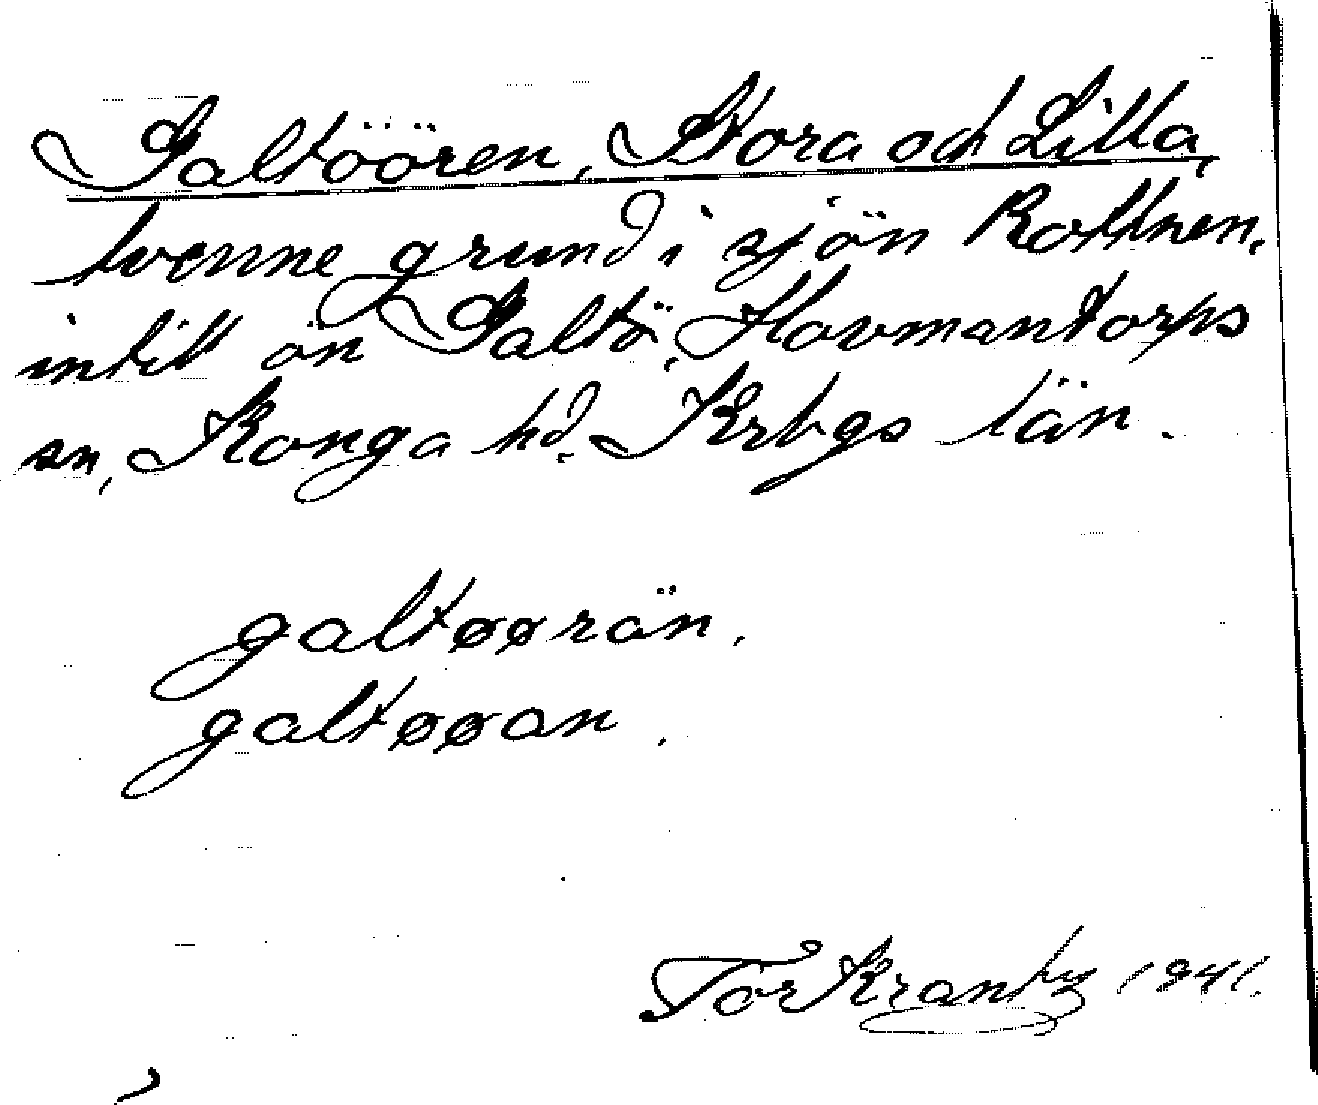 Galtöören, Stora och Lilla,
tvenne grund i sjön Rottnen,
intill ön Galtö, Hovmantorps
sn, Konga hd. Krbgs län.
galtøørän.
galtøøan.
Tor Krantz 1941.